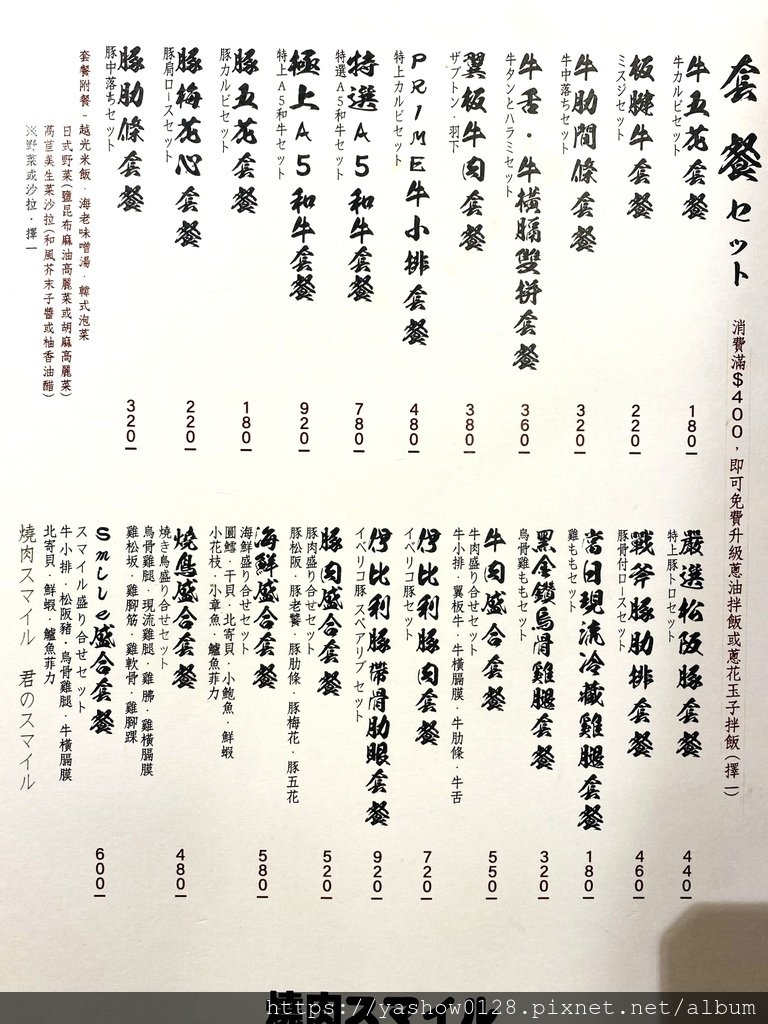 套餐セット
消費滿$400，即可免費升級蔥油拌飯或蔥花玉子拌飯(擇一)
牛五花套餐
牛カルビセット
180
板腱牛套餐
ミスジセット
220
牛肋間條套餐
牛中落ちセット
320
牛舌·牛橫膈雙拼套餐
牛タンとハラミセット
360
翼板牛肉套餐
ザブトン·羽下
380
PRIME牛小排套餐
特上カルビセット
480
特選A5和牛套餐
特選A5和牛セット
780
極上A5和牛套餐
特上A5和牛セット
920
豚五花套餐
豚カルビセット
180
豚梅花心套餐
豚肩ロースセット
220
豚肋條套餐
豚中落ちセット
320
套餐附餐-越光米飯·海老味噌湯·韓式泡菜
日式野菜(鹽昆布麻油高麗菜或胡麻高麗菜)
萵苣美生菜沙拉(和風芥末子醬或柚香油醋)
※野菜或沙拉·擇一
嚴選松阪豚套餐
特上豚トロセット
440
戰斧豚肋排套餐
豚骨付ロースセット
460
當日現流冷藏雞腿套餐
雞ももセット
180
黑金鑽烏骨雞腿套餐
烏骨雞ももセット
320
牛肉盛合套餐
牛肉盛り合せセット
牛小排·翼板牛·牛橫膈膜·牛肋條·牛舌
550
伊比利豚肉套餐
イベリコ豚セット
720
伊比利豚帶骨肋眼套餐
イベリコ豚 スペアリブ セット
920
豚肉盛合套餐
豚肉盛り合せセット
豚松阪·豚老饕·豚肋條·豚梅花·豚五花
520
海鮮盛合套餐
海鮮盛り合せセット
圓鱈·干貝·北寄貝·小鮑魚·鮮蝦
小花枝·小章魚·鱸魚菲力
580
燒鳥盛合套餐
燒き鳥盛り合せセット
烏骨雞腿·現流雞腿·雞胇·雞橫膈膜
雞松坂·雞腳筋·雞軟骨·雞腳踝
480
Smile盛合套餐
スマイル盛り合せセット
牛小排·松阪豬·烏骨雞腿·牛橫膈膜
北寄貝·鮮蝦·鱸魚菲力
600
燒肉スマイル 君のスマイル
燒肉スマイル
https://yashow0128.pixnet.net/album